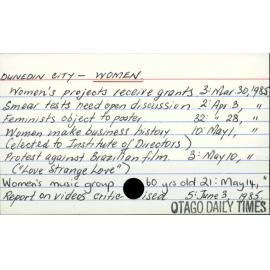 DUNEDIN CITY - WOMEN
Women's projects receive grants 3: Mar. 30, 1985.
Smear tests need open discussion 2: Apr. 3, "
Feminists object to poster 32: " 28, "
Women make business history 10: May 1, "
(elected to Institute of Directors)
Protest against Brazilian film. 3: May 10, "
("Love Strange Love")
Women's music group 60 yrs old 21: May 14, "
Report on videos criticised 5: June 3, 1985.
OTAGO DAILY TIMES